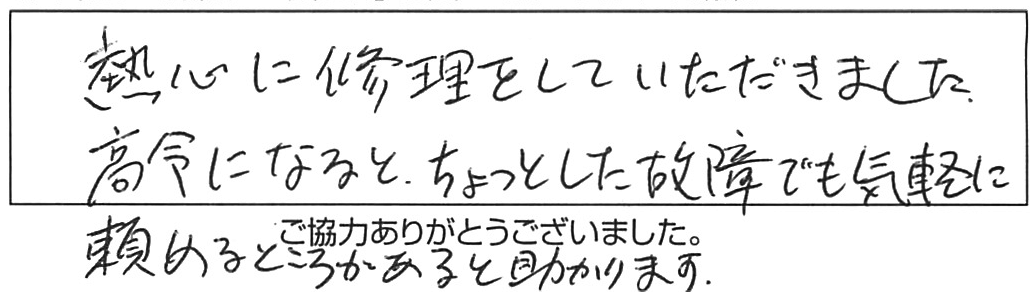 熱心に修理をしていただきました.
高令になると.ちょっとした故障でも気軽に
ご協力ありがとうございました。
頼めるところがあると助かります.